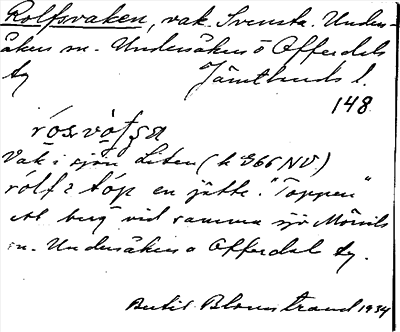 Rolfsvaken, vak. Svensta. Unders-
åkers sn. Undersåkers o Offerdals
tg Jämtlands l.
148
Vak i sjön Liten (k 366 NV)
en jätte. "Toppen"
ett berg vid samma sjö Mörsils
sn. Undersåkers o Offerdal tg.
Bertil Blomstrand 1934